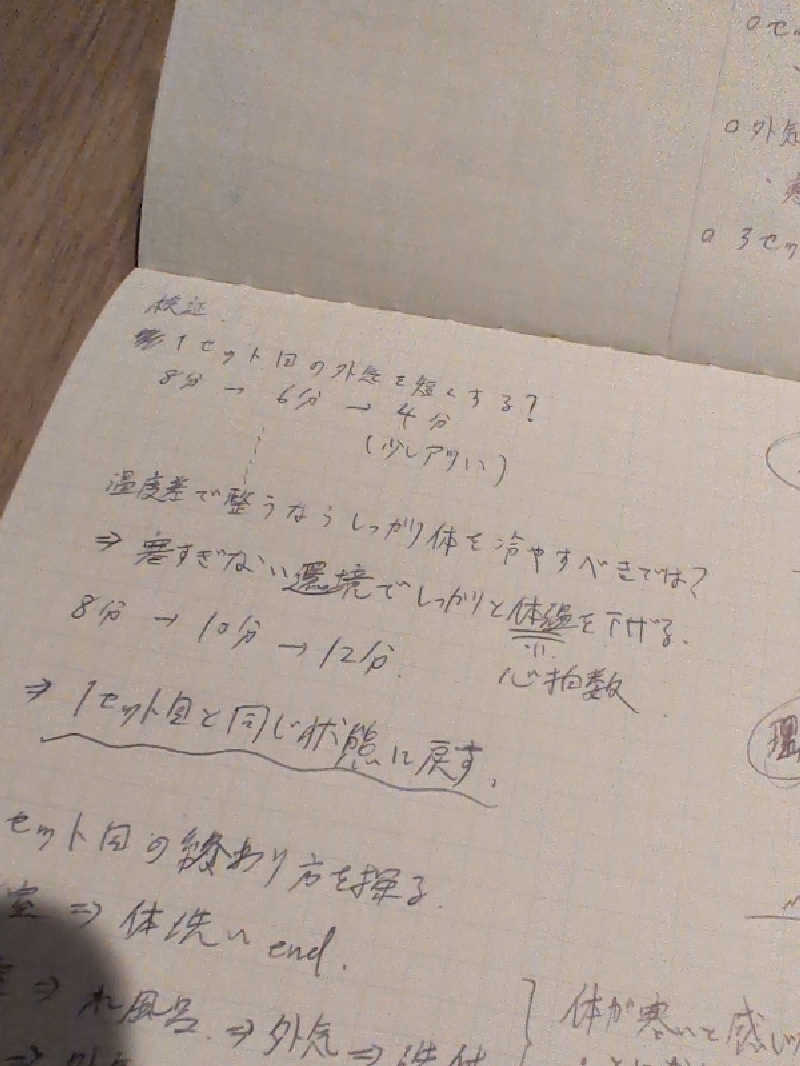 ○セッ
○外気
○3セッ
検証
1セット目の外気を短くする?
8分 → 6分 → 4分
(少しアツい)
温度差で整うならしっかり体を冷やすべきでは?
⇒ 寒すぎない環境でしっかりと体温を下げる。
心拍数
8分 → 10分 → 12分
⇒ 1セット目と同じ状態に戻す。
セット目の終わり方を探る。
室 ⇒ 体洗い end.
⇒ 水風呂 ⇒ 外気 ⇒ 洗体
体が寒いと感じ